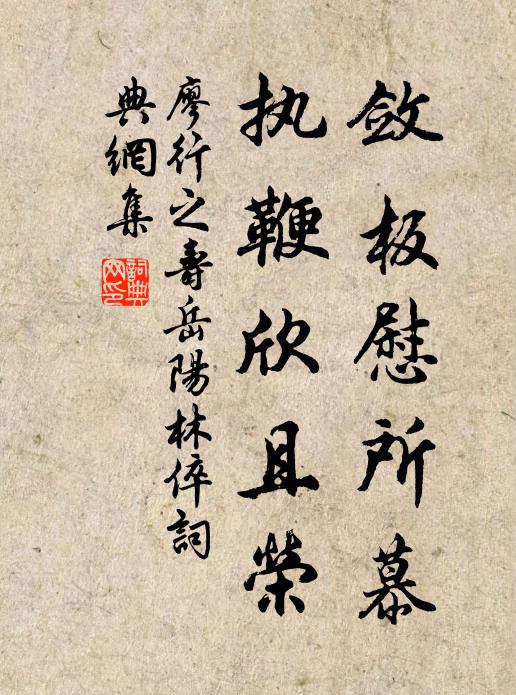 敛板慰所慕
执鞭欣且榮
廖行之壽岳陽林倅詞
典網集
詞典
网印